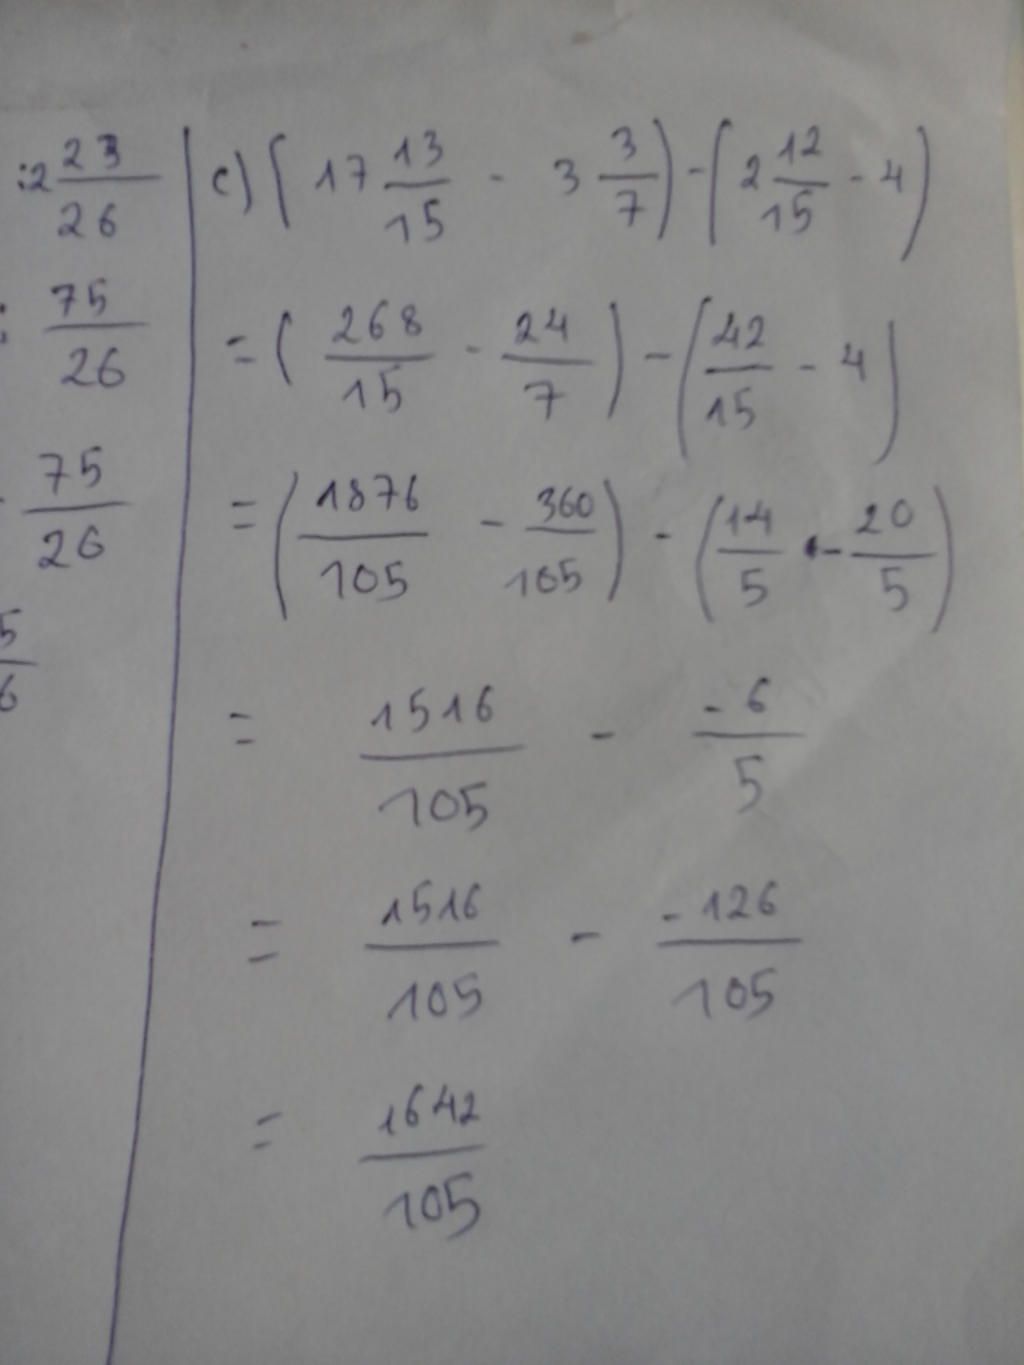 :2 23/26
: 75/26
75/26
5/6
c) (17 13/15 - 3 3/7) - (2 12/15 - 4)
= (268/15 - 24/7) - (42/15 - 4)
= (1876/105 - 360/105) - (14/5 - 20/5)
= 1516/105 - -6/5
= 1516/105 - -126/105
= 1642/105